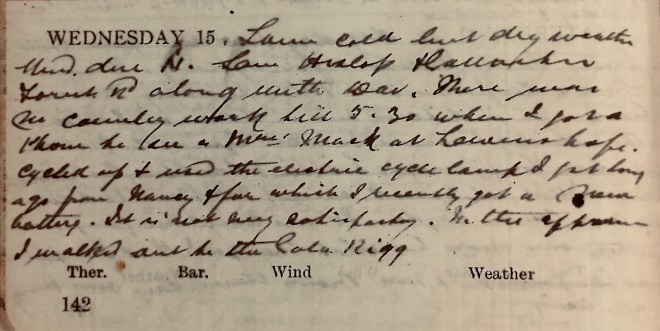 WEDNESDAY 15. Same cold but dry weather
Wind due N. Saw Heslop
Forest Rd along with Dav. There was
no country work till 5.30 when I got a
Phone to see a Mrs Mack at
cycled up & used the electric cycle lamp I got long
ago from Nancy & for which I recently got a new
battery. It is not very satisfactory. In the afternoon
I walked out to the Cola Rigg
Ther. Bar. Wind Weather
142